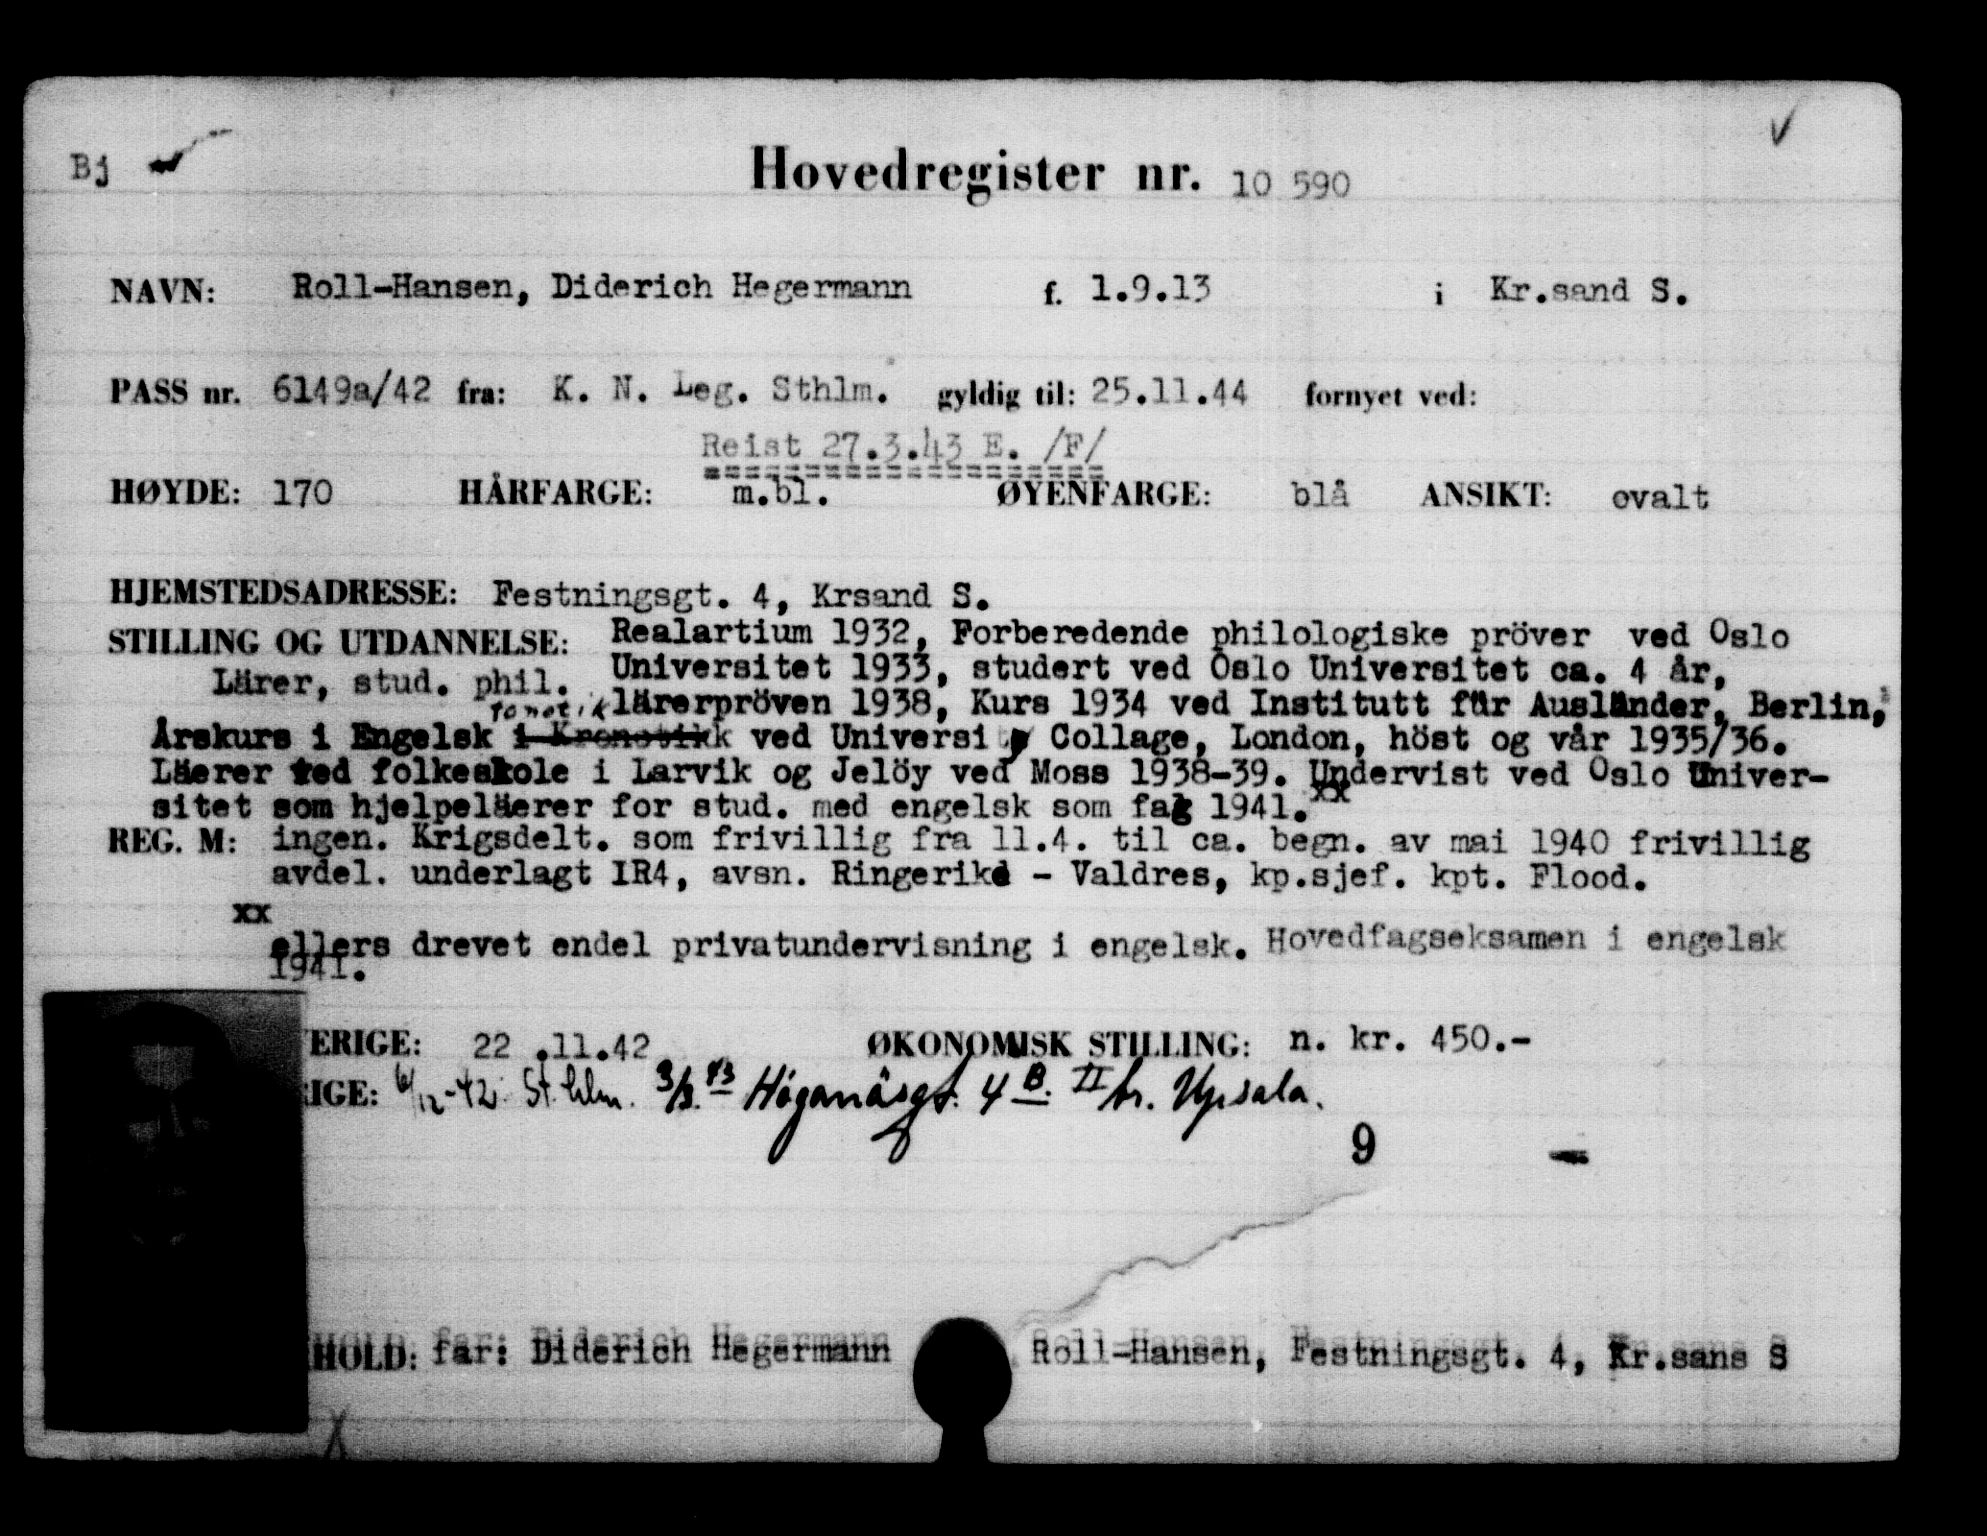 Bj
Hovedregister nr. 10 590
NAVN: Roll-Hansen, Diderich Hegermann f. 1.9.13 i Kr.sand S.
PASS nr. 6149a/42 fra: K. N. Leg. Sthlm. gyldig til: 25.11.44 fornyet ved:
Reist 27.3.43 E. /F/
HØYDE: 170 HÅRFARGE: m.bl. ØYENFARGE: blå ANSIKT: ovalt
HJEMSTEDSADRESSE: Festningsgt. 4, Krsand S.
STILLING OG UTDANNELSE: Realartium 1932, Forberedende philologiske pröver ved Oslo
Lärer, stud. phil. Universitet 1933, studert ved Oslo Universitet ca. 4 år,
fonetik lärerpröven 1938, Kurs 1934 ved Institutt für Ausländer, Berlin,
Årskurs i Engelsk ved University Collage, London, höst og vår 1935/36.
Läerer ved folkeskole i Larvik og Jelöy ved Moss 1938-39. Undervist ved Oslo Univer-
sitet som hjelpeläerer for stud. med engelsk som fag 1941. xx
REG. M: ingen. Krigsdelt. som frivillig fra 11.4. til ca. begn. av mai 1940 frivillig
avdel. underlagt IR4, avsn. Ringerike - Valdres, kp.sjef. kpt. Flood.
xx
ellers drevet endel privatundervisning i engelsk. Hovedfagseksamen i engelsk
1941.
VERIGE: 22 .11.42 ØKONOMISK STILLING: n. kr. 450.-
RIGE: 6/12-42. Sthlm. 3/3.43 Höganäsgt. 4 B. II tr. Upsala.
9
HOLD: far: Diderich Hegermann Roll-Hansen, Festningsgt. 4, Kr.sans S